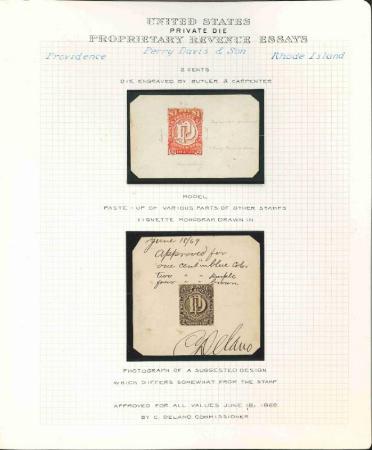 UNITED STATES
PRIVATE DIE
PROPRIETARY REVENUE ESSAYS
Providence Perry Davis & Son Rhode Island
2 CENTS
DIE ENGRAVED BY BUTLER & CARPENTER
MODEL
PASTE-UP OF VARIOUS PARTS OF OTHER STAMPS
VIGNETTE MONOGRAM DRAWN IN
June 18/69
Approved for
one cent in blue color
two " " purple
four " " brown
C Delano
PHOTOGRAPH OF A SUGGESTED DESIGN
WHICH DIFFERS SOMEWHAT FROM THE STAMP
APPROVED FOR ALL VALUES JUNE 18, 1869
BY C. DELANO COMMISSIONER